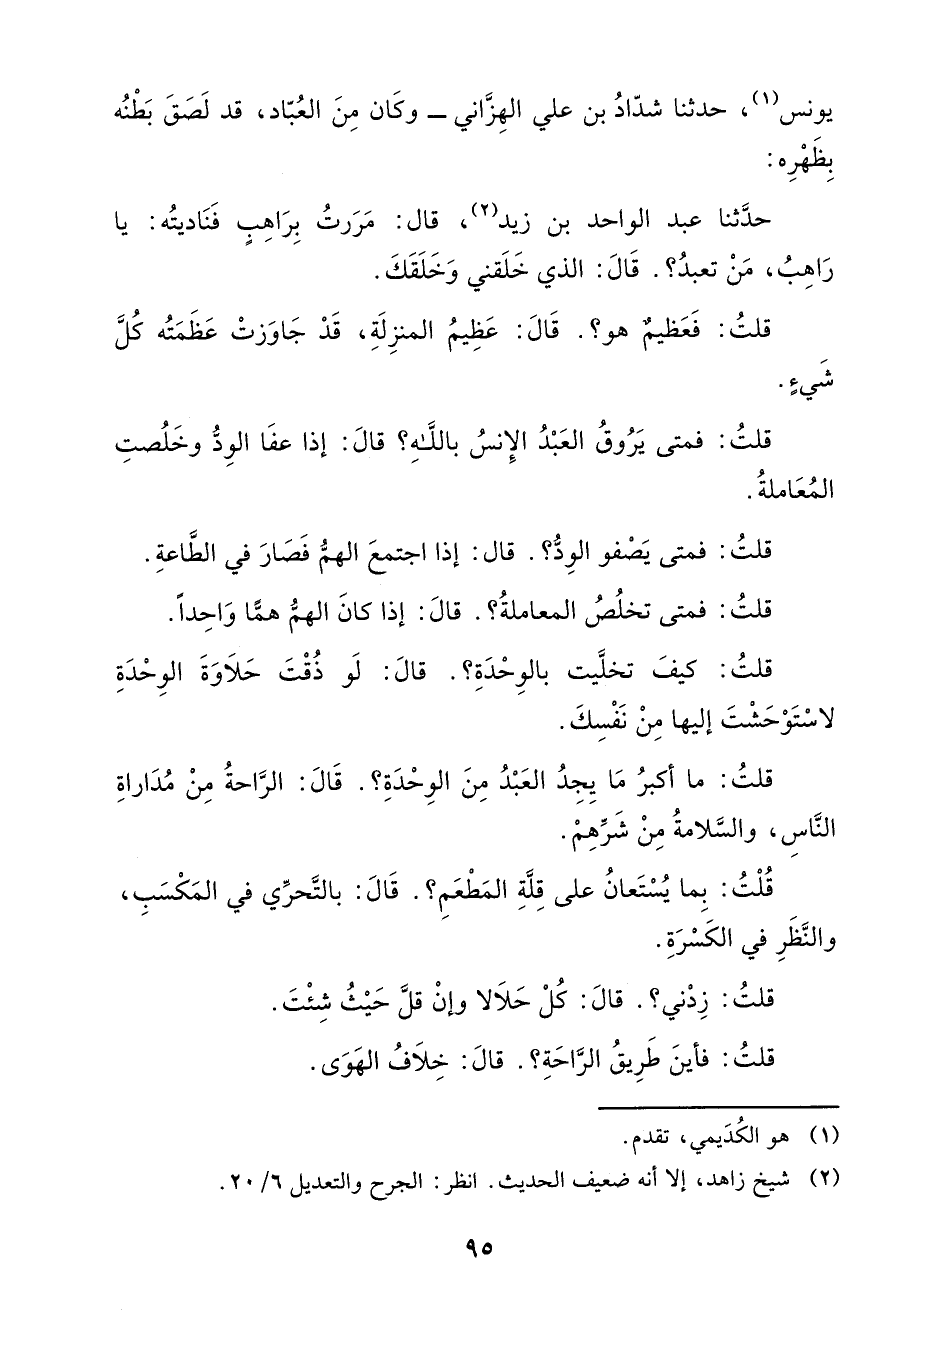 يونس(١)، حدثنا شدّادُ بن علي الهِزَّاني ــ وكَان مِنَ العُبّاد، قد لَصَقَ بَطْنُه
بِظَهْرِه :
حدَّثنا عبد الواحد بن زيد(٢)، قال: مَرَرتُ بِرَاهِبٍ فَنَاديتُه: يا
رَاهِبُ، مَنْ تعبدُ؟. قَالَ: الذي خَلَقني وَخَلَقَكَ.
قلتُ: فَعَظيمٌ هو؟. قَالَ: عَظِيمُ المنزِلَةِ، قَدْ جَاوَزتْ عَظَمَتُه كُلَّ
شَيءٍ.
قلتُ: فمتى يَرُوقُ العَبْدُ الإِنسُ باللَّهِ؟ قالَ: إذا عفَا الوِدُّ وخَلُصتِ
المُعَاملةُ.
قلتُ: فمتى يَصْفو الوِدُّ؟. قال: إذا اجتمعَ الهمُّ فَصَارَ في الطَّاعةِ.
قلتُ: فمتى تخلُصُ المعاملةُ؟. قالَ: إذا كانَ الهمُّ همًّا وَاحِداً.
قلتُ: كيفَ تخلَّيت بالوِحْدَةِ؟. قالَ: لَو ذُقْتَ حَلَاوَةَ الوِحْدَةِ
لاسْتَوْحَشْتَ إليها مِنْ نَفْسِكَ.
قلتُ: ما أكبرُ مَا يجِدُ العَبْدُ مِنَ الوِحْدَةِ؟. قَالَ: الرَّاحةُ مِنْ مُدَاراةِ
النَّاسِ، والسَّلامةُ مِنْ شَرِّهِمْ.
قُلْتُ: بِما يُسْتَعانُ على قِلَّةِ المَطْعَمِ؟. قَالَ: بالتَّحرِّي في المَكْسَبِ،
والنَّظَرِ في الكَسْرَةِ.
قلتُ: زِدْني؟. قالَ: كُلْ حَلَالا وإنْ قلَّ حَيْثُ شِئْتَ.
قلتُ: فأينَ طَرِيقُ الرَّاحَةِ؟. قالَ: خِلَافُ الهَوَى.
(١) هو الكُدَيمي، تقدم.
(٢) شيخ زاهد، إلا أنه ضعيف الحديث. انظر: الجرح والتعديل ٢٠/٦.
٩٥